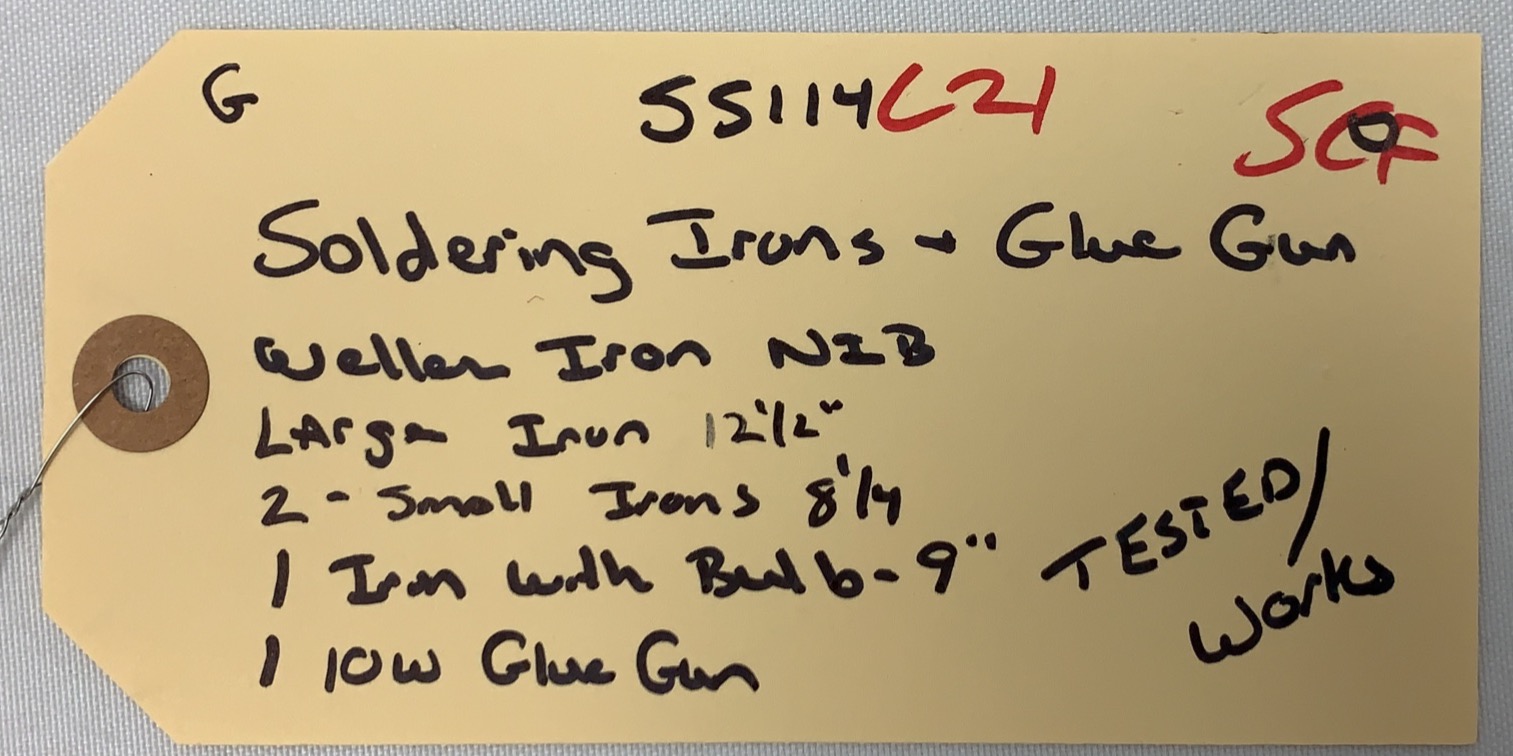 G SS114C21 SCF
Soldering Irons + Glue Gun
Weller Iron NIB
LArge Iron 12 1/2"
2 - Small Irons 8 1/4
1 Iron with Bulb - 9"
TESTED/
Works
1 10W Glue Gun